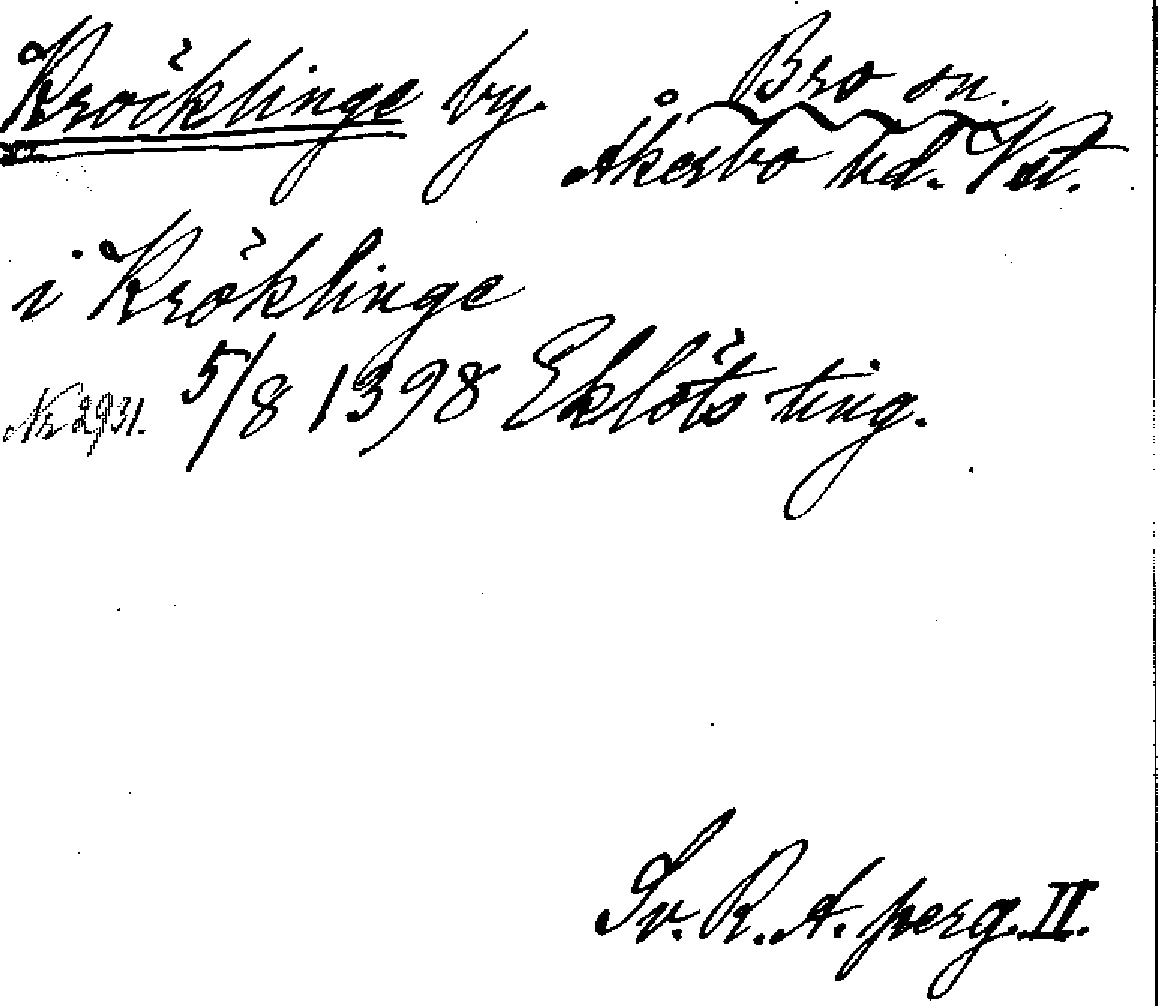 Kröcklinge by. Bro sn.
Åkerbo hd. Vst.
i Kröklinge
Nr 2931. 5/8 1398 Eklöts ting.
Sv. R. A. perg. II.